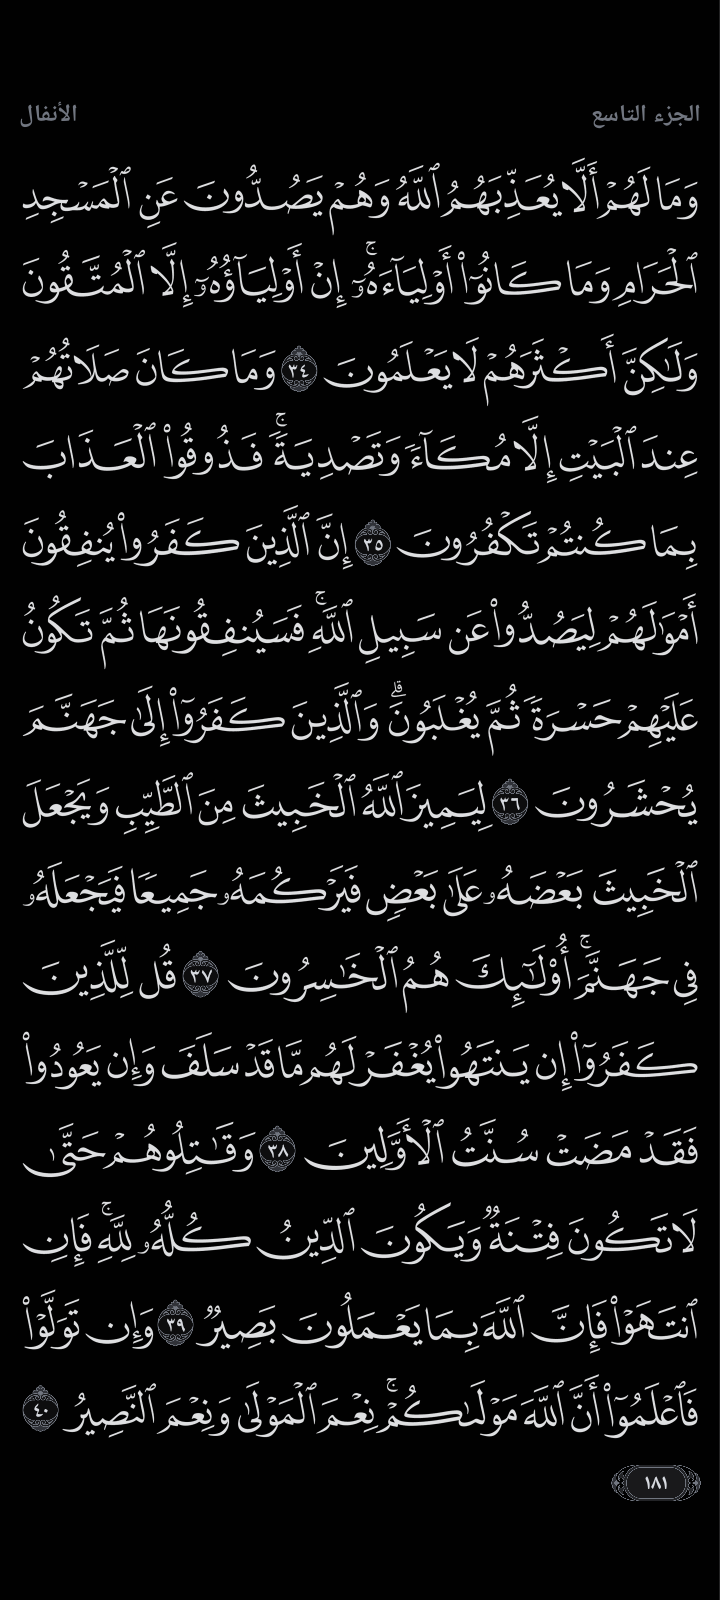 الجزء التاسع
الأنفال
وَمَا لَهُمْ أَلَّا يُعَذِّبَهُمُ ٱللَّهُ وَهُمْ يَصُدُّونَ عَنِ ٱلْمَسْجِدِ
ٱلْحَرَامِ وَمَا كَانُوٓا۟ أَوْلِيَآءَهُۥٓ ۚ إِنْ أَوْلِيَآؤُهُۥٓ إِلَّا ٱلْمُتَّقُونَ
وَلَـٰكِنَّ أَكْثَرَهُمْ لَا يَعْلَمُونَ ٣٤ وَمَا كَانَ صَلَاتُهُمْ
عِندَ ٱلْبَيْتِ إِلَّا مُكَآءً وَتَصْدِيَةً ۚ فَذُوقُوا۟ ٱلْعَذَابَ
بِمَا كُنتُمْ تَكْفُرُونَ ٣٥ إِنَّ ٱلَّذِينَ كَفَرُوا۟ يُنفِقُونَ
أَمْوَٰلَهُمْ لِيَصُدُّوا۟ عَن سَبِيلِ ٱللَّهِ ۚ فَسَيُنفِقُونَهَا ثُمَّ تَكُونُ
عَلَيْهِمْ حَسْرَةً ثُمَّ يُغْلَبُونَ ۗ وَٱلَّذِينَ كَفَرُوٓا۟ إِلَىٰ جَهَنَّمَ
يُحْشَرُونَ ٣٦ لِيَمِيزَ ٱللَّهُ ٱلْخَبِيثَ مِنَ ٱلطَّيِّبِ وَيَجْعَلَ
ٱلْخَبِيثَ بَعْضَهُۥ عَلَىٰ بَعْضٍ فَيَرْكُمَهُۥ جَمِيعًا فَيَجْعَلَهُۥ
فِى جَهَنَّمَ ۚ أُو۟لَـٰٓئِكَ هُمُ ٱلْخَـٰسِرُونَ ٣٧ قُل لِّلَّذِينَ
كَفَرُوٓا۟ إِن يَنتَهُوا۟ يُغْفَرْ لَهُم مَّا قَدْ سَلَفَ وَإِن يَعُودُوا۟
فَقَدْ مَضَتْ سُنَّتُ ٱلْأَوَّلِينَ ٣٨ وَقَـٰتِلُوهُمْ حَتَّىٰ
لَا تَكُونَ فِتْنَةٌ وَيَكُونَ ٱلدِّينُ كُلُّهُۥ لِلَّهِ ۚ فَإِنِ
ٱنتَهَوْا۟ فَإِنَّ ٱللَّهَ بِمَا يَعْمَلُونَ بَصِيرٌ ٣٩ وَإِن تَوَلَّوْا۟
فَٱعْلَمُوٓا۟ أَنَّ ٱللَّهَ مَوْلَىٰكُمْ ۚ نِعْمَ ٱلْمَوْلَىٰ وَنِعْمَ ٱلنَّصِيرُ ٤٠
١٨١